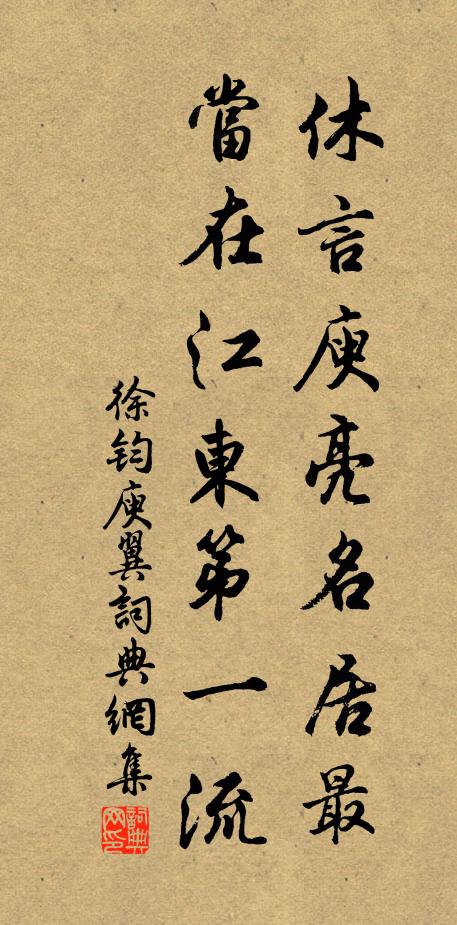 休言庾亮名居最
當在江東第一流
徐鈞庾翼詞典網集
詞典網印